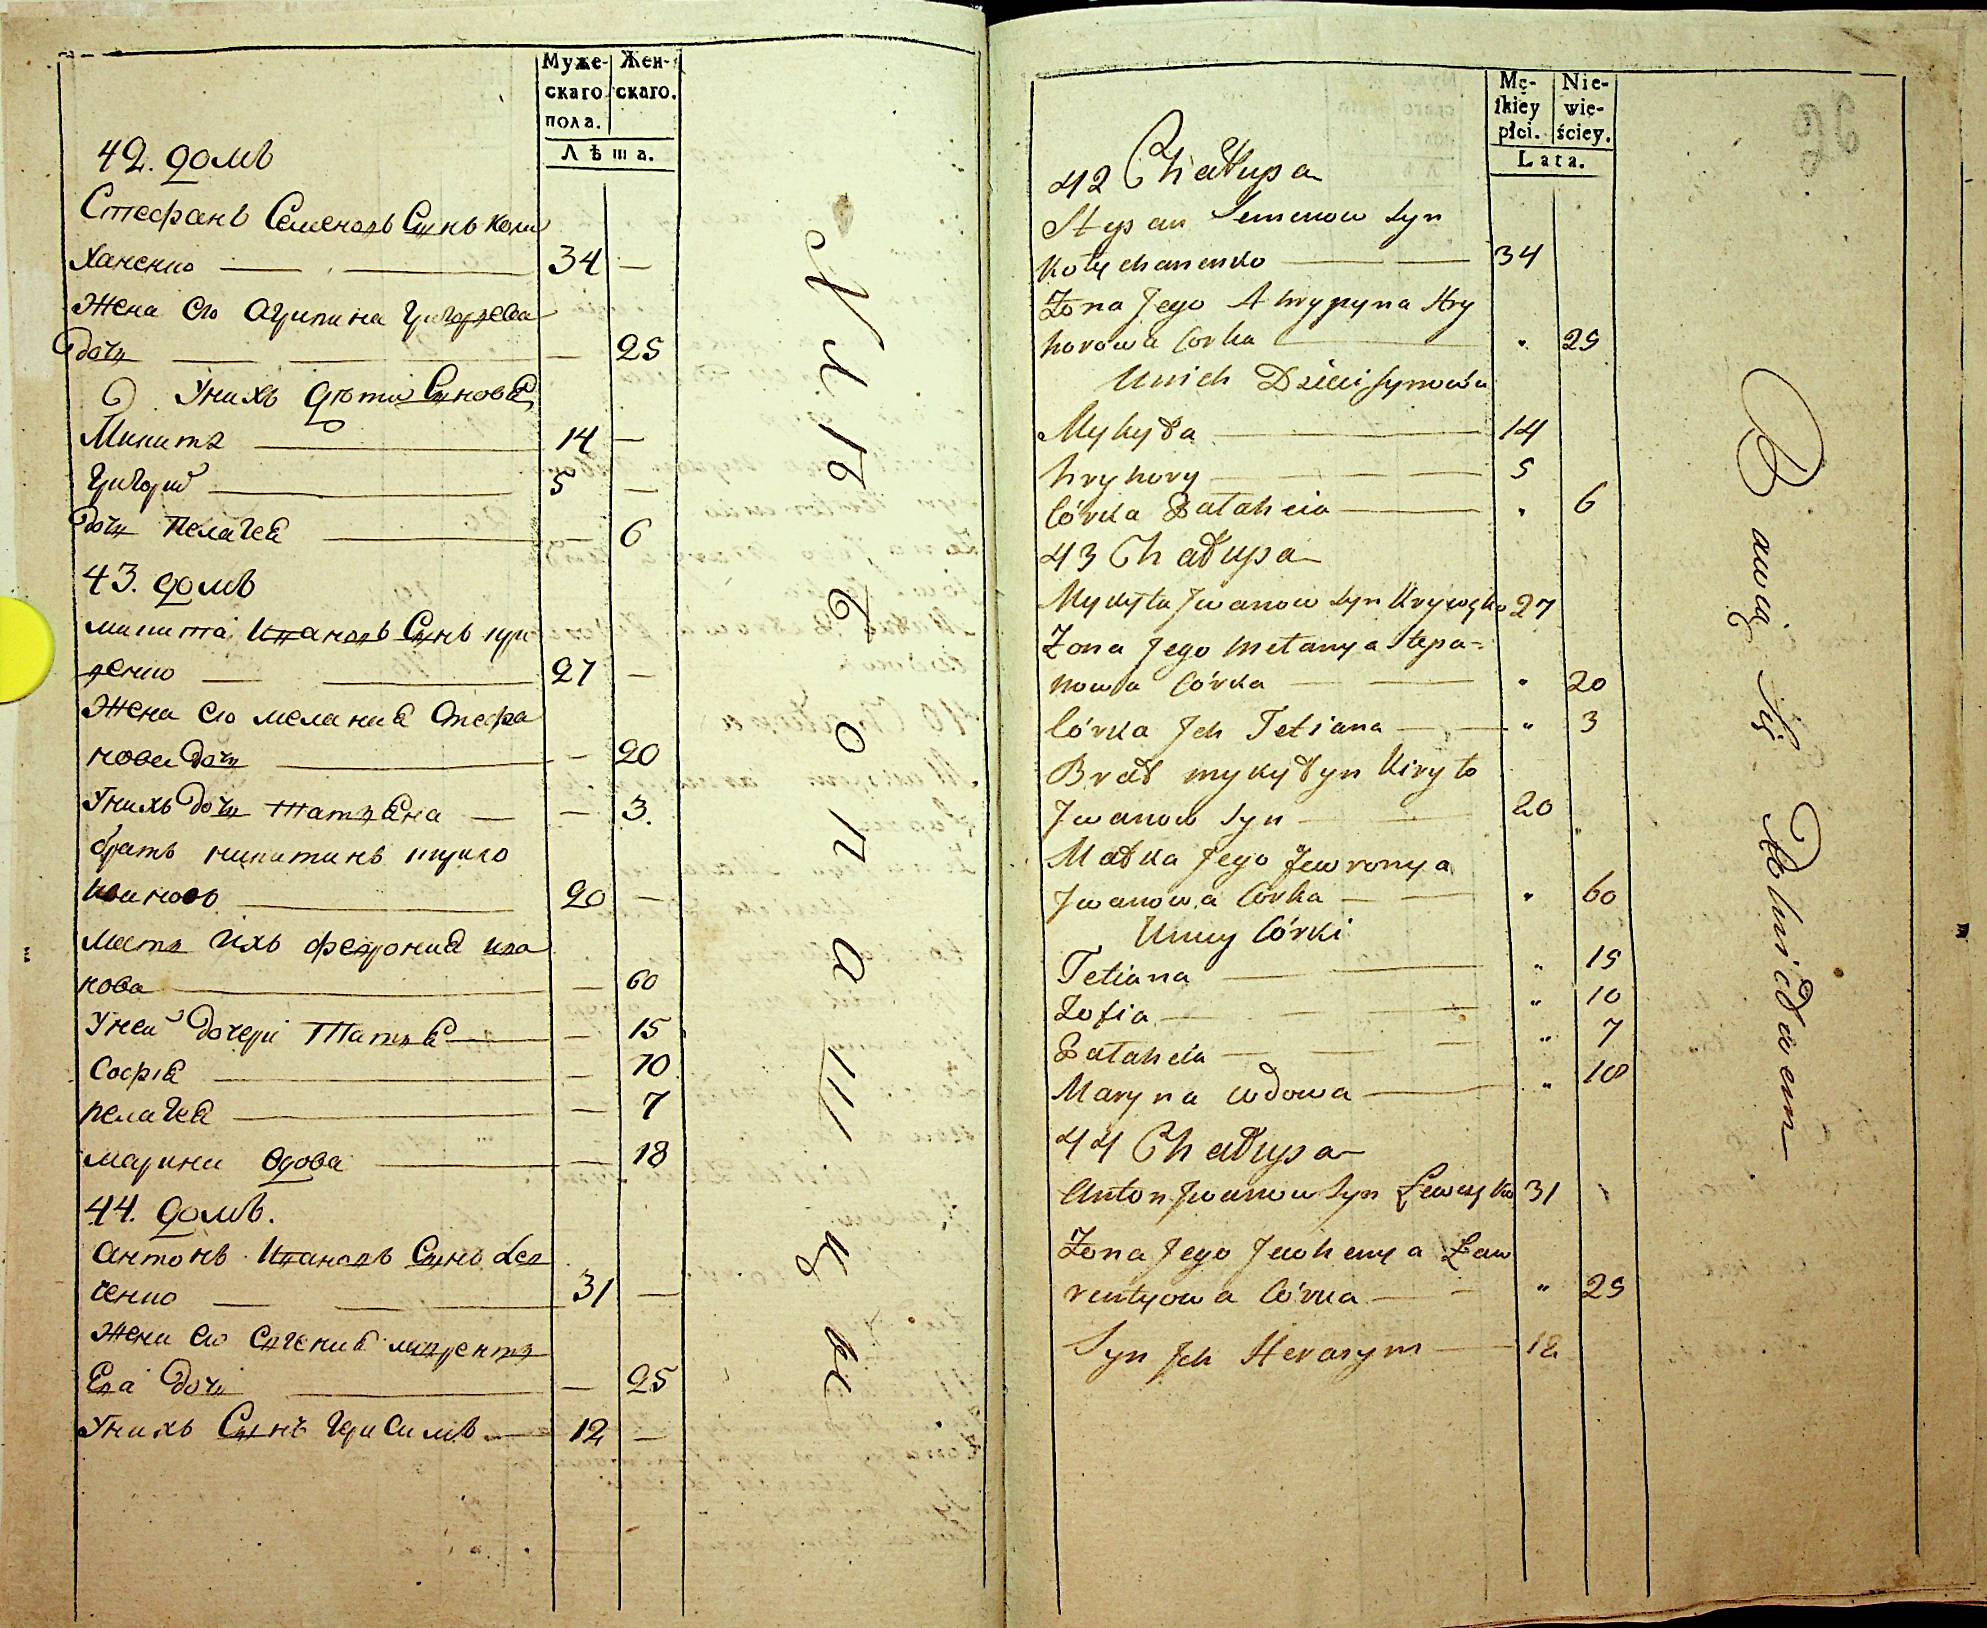 Муже-
скаго
пола.
Жен-
скаго.
Лѣта.
42. домъ
Стефанъ Семеновъ Сынъ Коли
ханенко 34
Жена его Агрипина Григорьева
дочь 25
У нихъ дѣти Сыновья
Микита 14
Григорий 5
дочь Пелагея 6
43. домъ
микита Ивановъ Сынъ кри
венко 27
Жена его мелания Стефа
нова дочь 20
У нихъ дочь Татьяна 3.
братъ микитинъ кирило
Ивановъ 20
Мать ихъ феврония ива
нова 60
У ней дочери Татья 15
София 10
пелагея 7
марина вдова 18
44. домъ.
антонъ Ивановъ Сынъ Лев
ченко 31
Жена его Евгения лаврентъ
ева дочь 25
У нихъ Сынъ Герасимъ 12
Хлѣбопашцы
Mę-
skiey
płci.
Nie-
wie-
ściey.
Lata.
42 Chałupa
Stepan Semenow Syn
Kołychanenko 34
Żona Jego Ahrypyna Hry
horowa Corka 25
Unich Dzieci Synowie
Mykyta 14
hryhory 5
Córka Pałaheia 6
43 Chałupa
Mykyta Jwanow Syn Krywęko 27
Żona Jego Mełanya Stepa-
nowa Córka 20
Córka Jch Tetiana 3
Brat mykytyn Kiryło
Jwanow Syn 20
Matka Jego Jewronya
Jwanowa Corka 60
Uniey Córki
Tetiana 15
Zofia 10
Pałaheia 7
Maryna wdowa 18
44 Chałupa
Anton Jwanow Syn Lewczęko 31
Żona Jego Jewhenya Ław
rentyowa Córka 25
Syn Jch Herasym 12
Bawią Się Rolnictwem